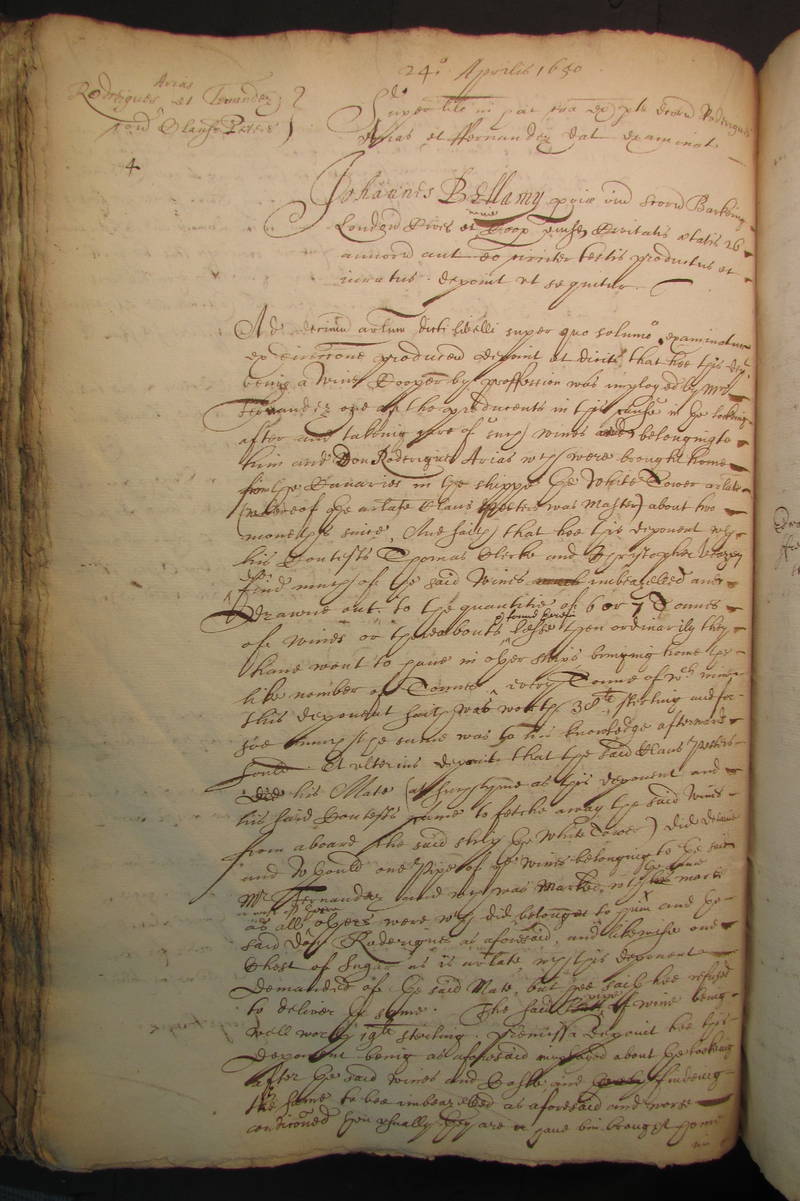 24o Aprilis 1650
Arias
Rodrigues et Fernandez
cond Clause Peters
Super lite in par ex pte dcord Rodrigues
Arias et ffernandez dat examinat
4
Johannes Bellamy pciæ oim scord Barking
London Cives et Coop ætatis 26
annord aut eo circiter testis productus et
iuratus deponit ut sequitur
Ad decimum artum dicti libelli super quo solumo examinatur
ex dirrcone producen deponit et dicit that hee this dept
being a wine Cooper by proffession was imployed by Mr
Fernandez one of the producents in this cause in the looking
after and taking care of such wines belonging to
him and Don Roderigues Arias wch were brought home
from the Canaries in the shippe the White Tower arlate
(whereof the arlate Claus Peters was Master) about two
moneths since, And saith that hee this deponent wth
his Contests Thomas Clerke and Christopher
find much of the said wines imbeazelled and
drawne out to the quantitie of 6 or 7 Tonnes
of wines or thereabouts lesse then ordinarily they
have wont to have in other ships bringing home the
like number of Tonnes, every Tonne of wch wines
this deponent saith was worth 38 li sterling and for
soe much the same was to his knowledge afterwards
sould. Et ulterius deponit that the said Claus Peters
his Mate (at such tyme as this deponent and
his said Contests came to fetche away the said wines
from aboard the said ship the White Tower) did detaine
and withhould one Pipe of the wines belonging to the said
Mr Fernandez and wch was marked with the same marke
as all others were wch did belong to him and the
said Don Roderigues as aforesaid, and likewise one
Chest of sugar as is arlate, wch this deponent
demanded of the said Mate, but hee saith hee refused
to deliver the same. The said pipe of wine being
well worth 19 li sterling. Præmissa deponit hee this
deponent being as aforesaid imployed about the looking
after the said wines and Caske and findeing
the same to bee imbeazelled as aforesaid and worse
conditioned then usually they are or have bin brought home
in